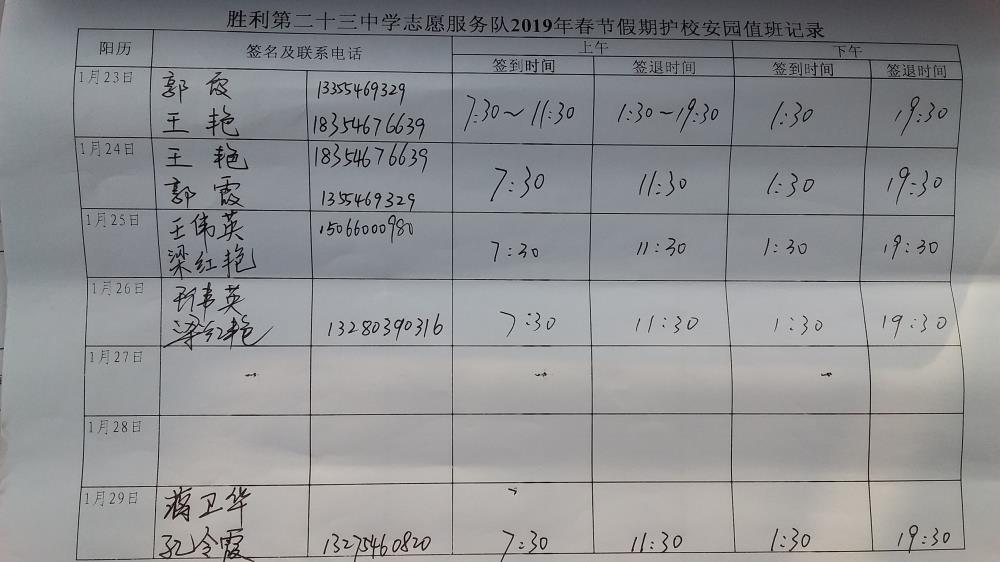 胜利第二十三中学志愿服务队2019年春节假期护校安园值班记录
阳历 签名及联系电话 上午 下午
签到时间 签退时间 签到时间 签退时间
1月23日 郭霞 13355469329
王艳 18354676639 7:30~11:30 1:30~19:30 1:30 19:30
1月24日 王艳 18354676639
郭霞 1355469329 7:30 11:30 1:30 19:30
1月25日 王伟英 15066000980
梁红艳 7:30 11:30 1:30 19:30
1月26日 王伟英
梁红艳 13280390316 7:30 11:30 1:30 19:30
1月27日
1月28日
1月29日 蒋卫华
孔令霞 13275460820 7:30 11:30 1:30 19:30